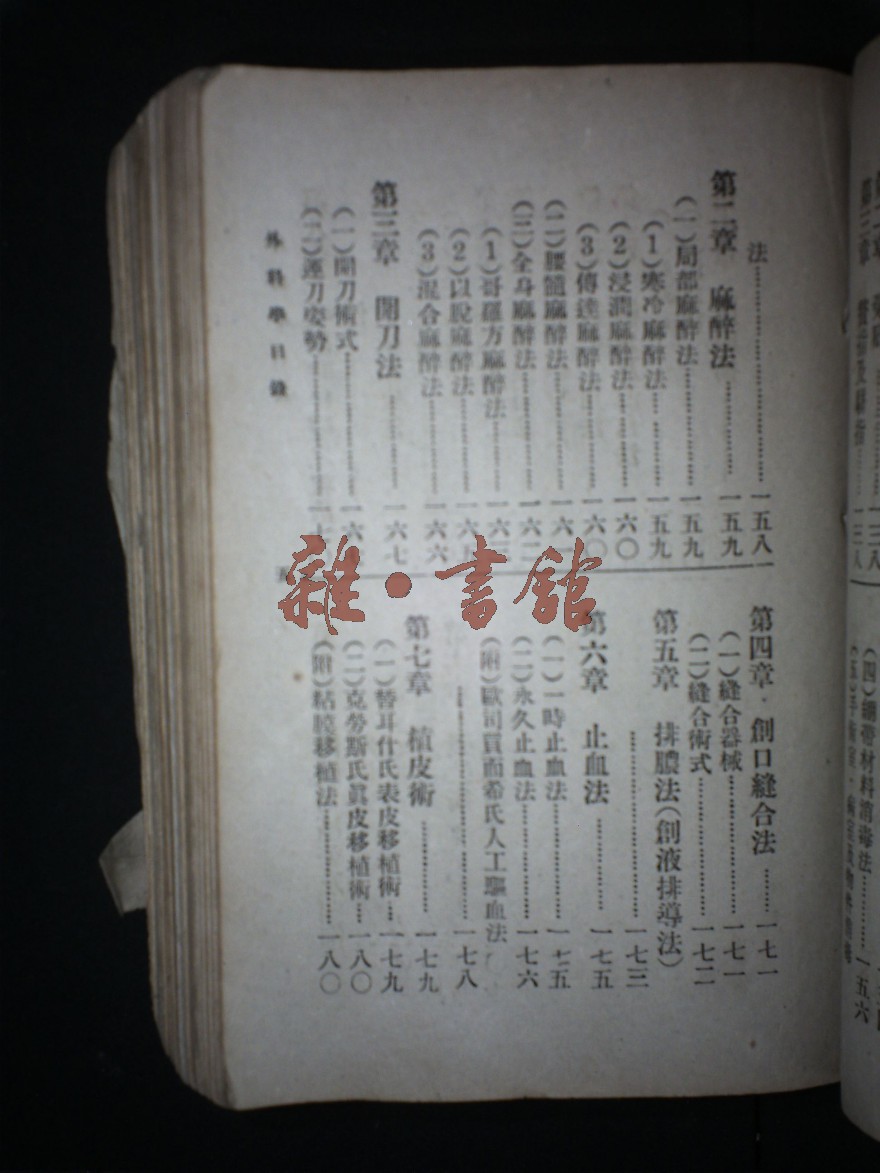 法……一五八
第二章 麻醉法……一五九
(一)局部麻醉法……一五九
(1)寒冷麻醉法……一五九
(2)浸潤麻醉法……一六〇
(3)傳達麻醉法……一六〇
(二)腰髓麻醉法……一六一
(三)全身麻醉法……一六二
(1)哥羅方麻醉法……一六
(2)以脫麻醉法……一六
(3)混合麻醉法……一六六
第三章 開刀法……一六七
(一)開刀術式……一六
(二)運刀姿勢……一
外科學目錄
第四章 創口縫合法……一七一
(一)縫合器械……一七一
(二)縫合術式……一七二
第五章 排膿法(創液排導法)
……一七三
第六章 止血法……一七五
(一)一時止血法……一七五
(二)永久止血法……一七六
(附)歐司買而希氏人工驅血法
……一七八
第七章 植皮術……一七九
(一)替耳什氏表皮移植術……一七九
(二)克勞斯氏真皮移植術……一八〇
(附)粘膜移植法……一八〇
雜·書館
(四)繃帶材料消毒法……一五六